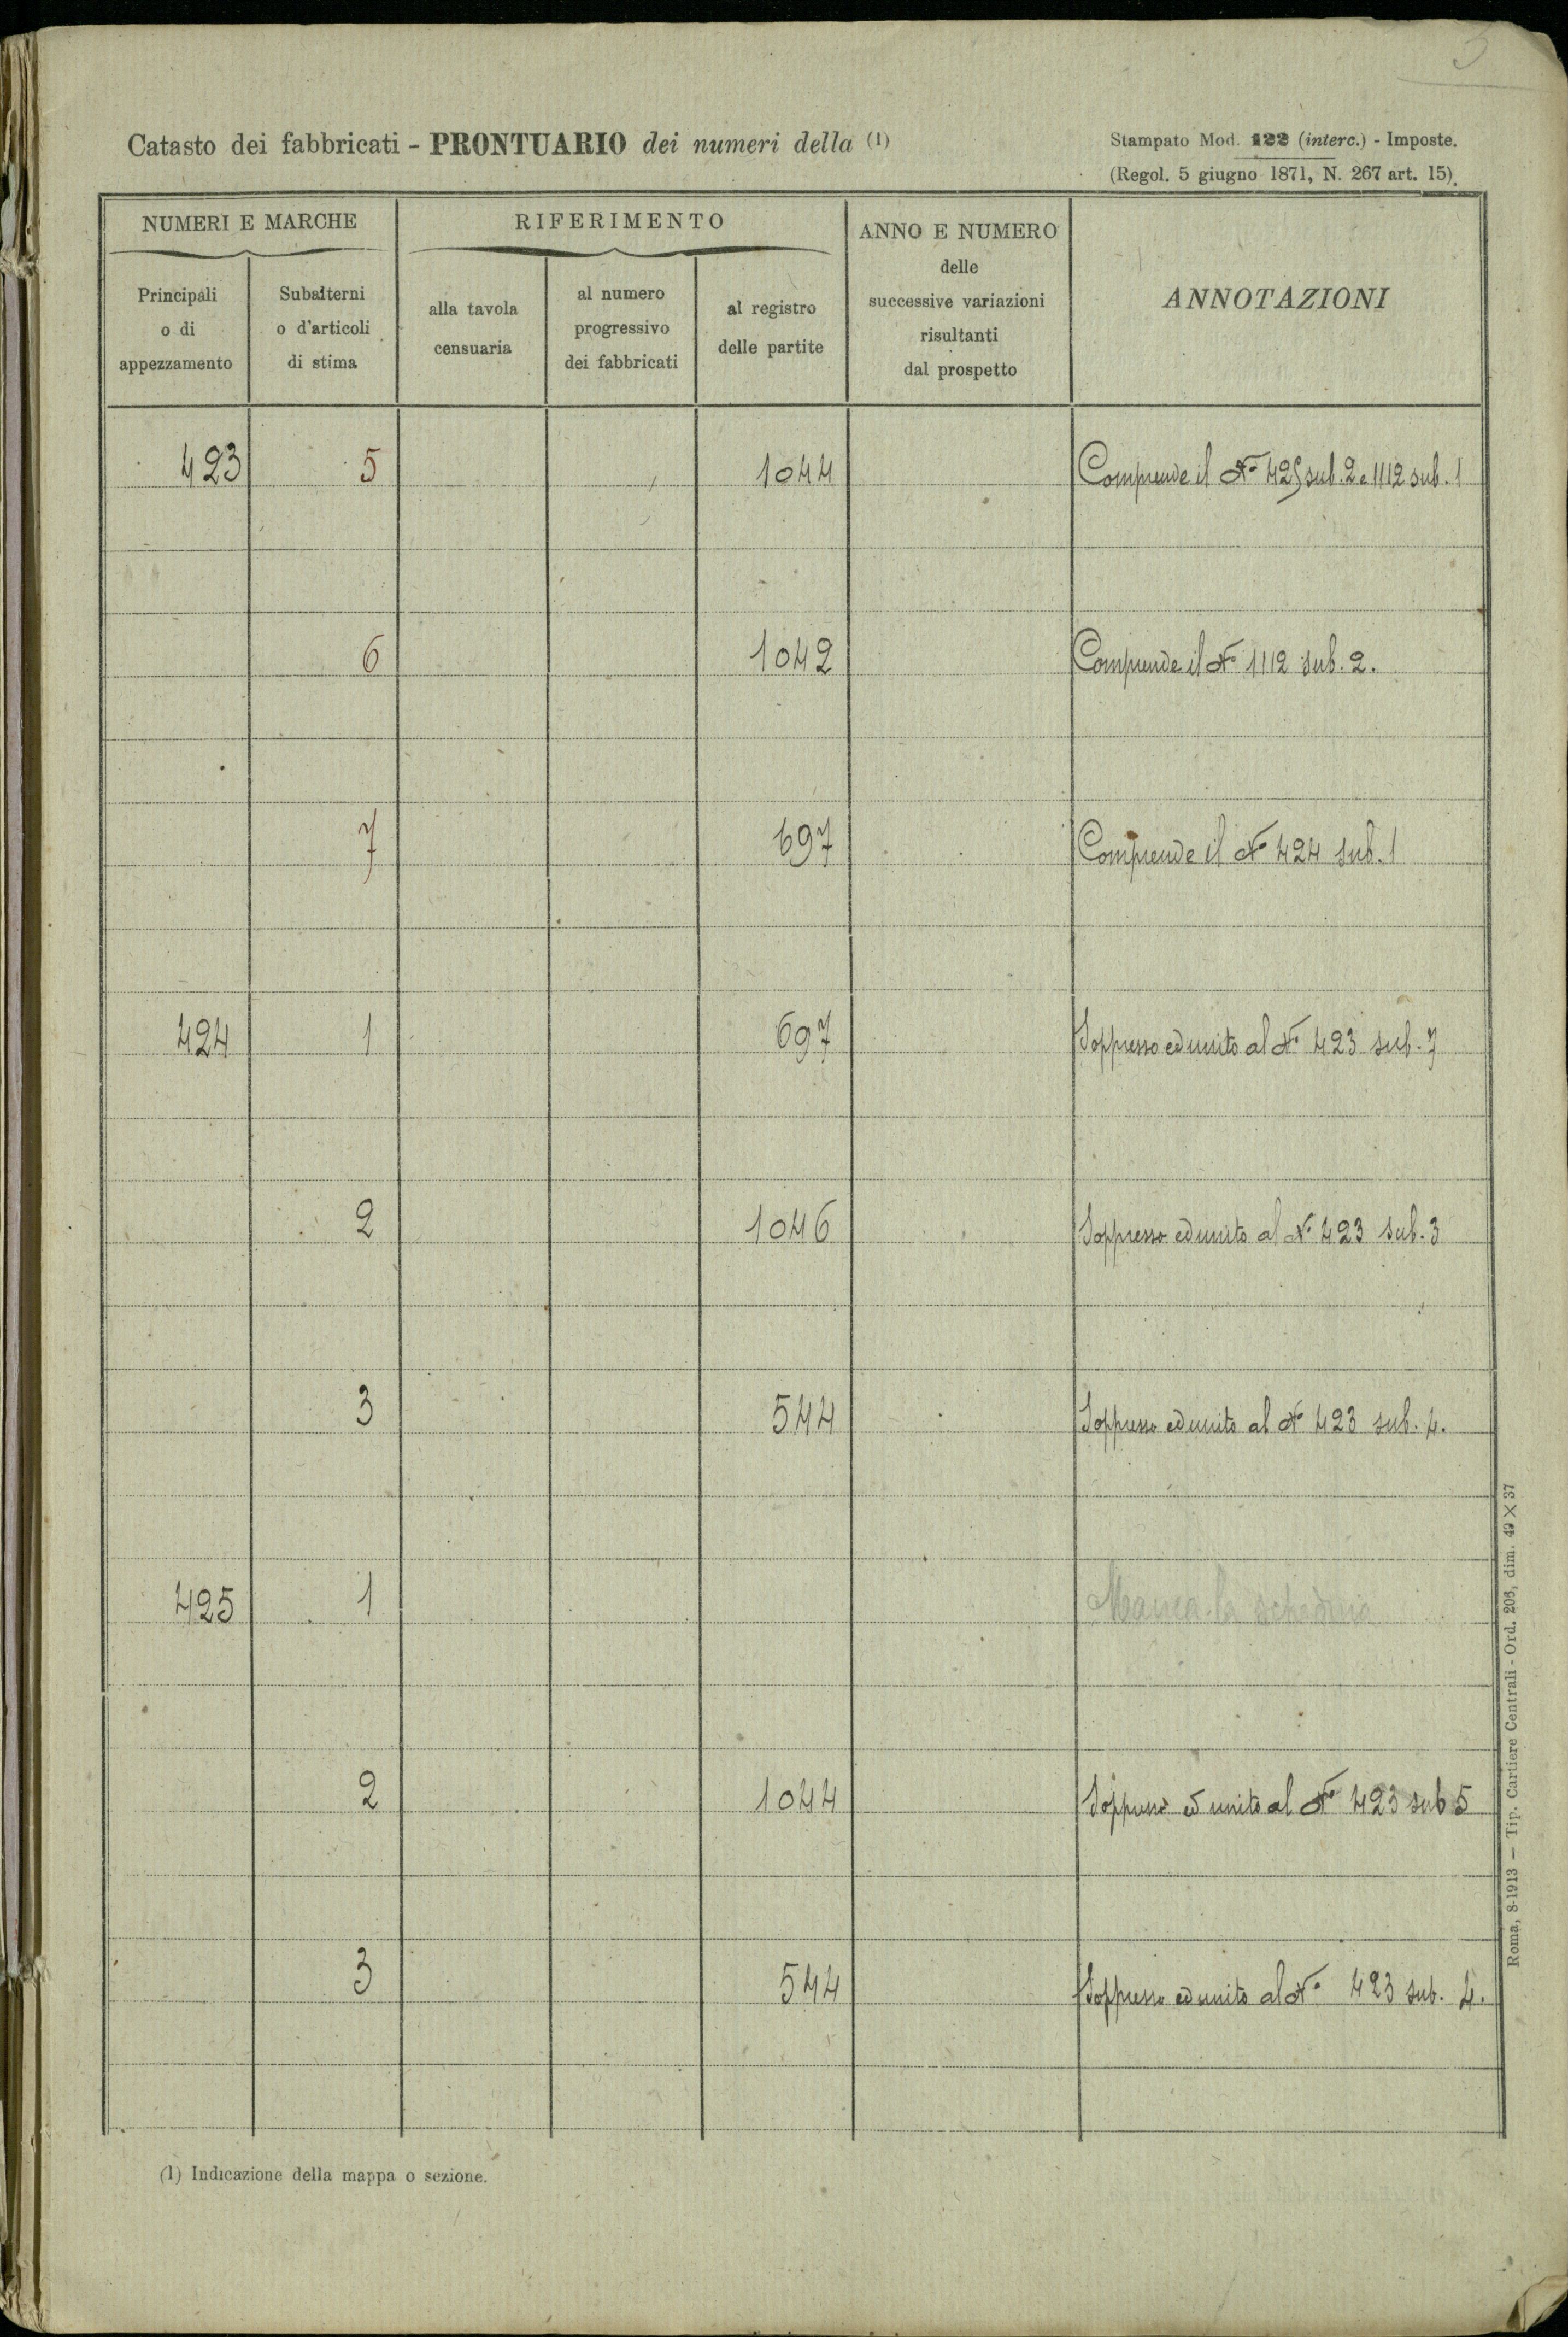 5
Catasto dei fabbricati - PRONTUARIO dei numeri della (1)
Stampato Mod. 122 (interc.) - Imposte.
(Regol. 5 giugno 1871, N. 267 art. 15).
NUMERI E MARCHE
RIFERIMENTO
ANNO E NUMERO
delle
successive variazioni
risultanti
dal prospetto
ANNOTAZIONI
Principali
o di
appezzamento
Subalterni
o d'articoli
di stima
alla tavola
censuaria
al numero
progressivo
dei fabbricati
al registro
delle partite
423 5 1044 Comprende il N° 425 sub. 2 e 1112 sub. 1
6 1042 Comprende il N° 1112 sub. 2.
7 697 Comprende il N° 424 sub. 1
424 1 697 Soppresso ed unito al N° 423 sub. 7
2 1046 Soppresso ed unito al N° 423 sub. 3
3 544 Soppresso ed unito al N° 423 sub. 4.
425 1 Manca la schedina
2 1044 Soppresso ed unito al N° 423 sub 5
3 544 Soppresso ed unito al N° 423 sub. 4.
(1) Indicazione della mappa o sezione.
Roma, 8-1913 — Tip. Cartiere Centrali - Ord. 206, dim. 49 × 37